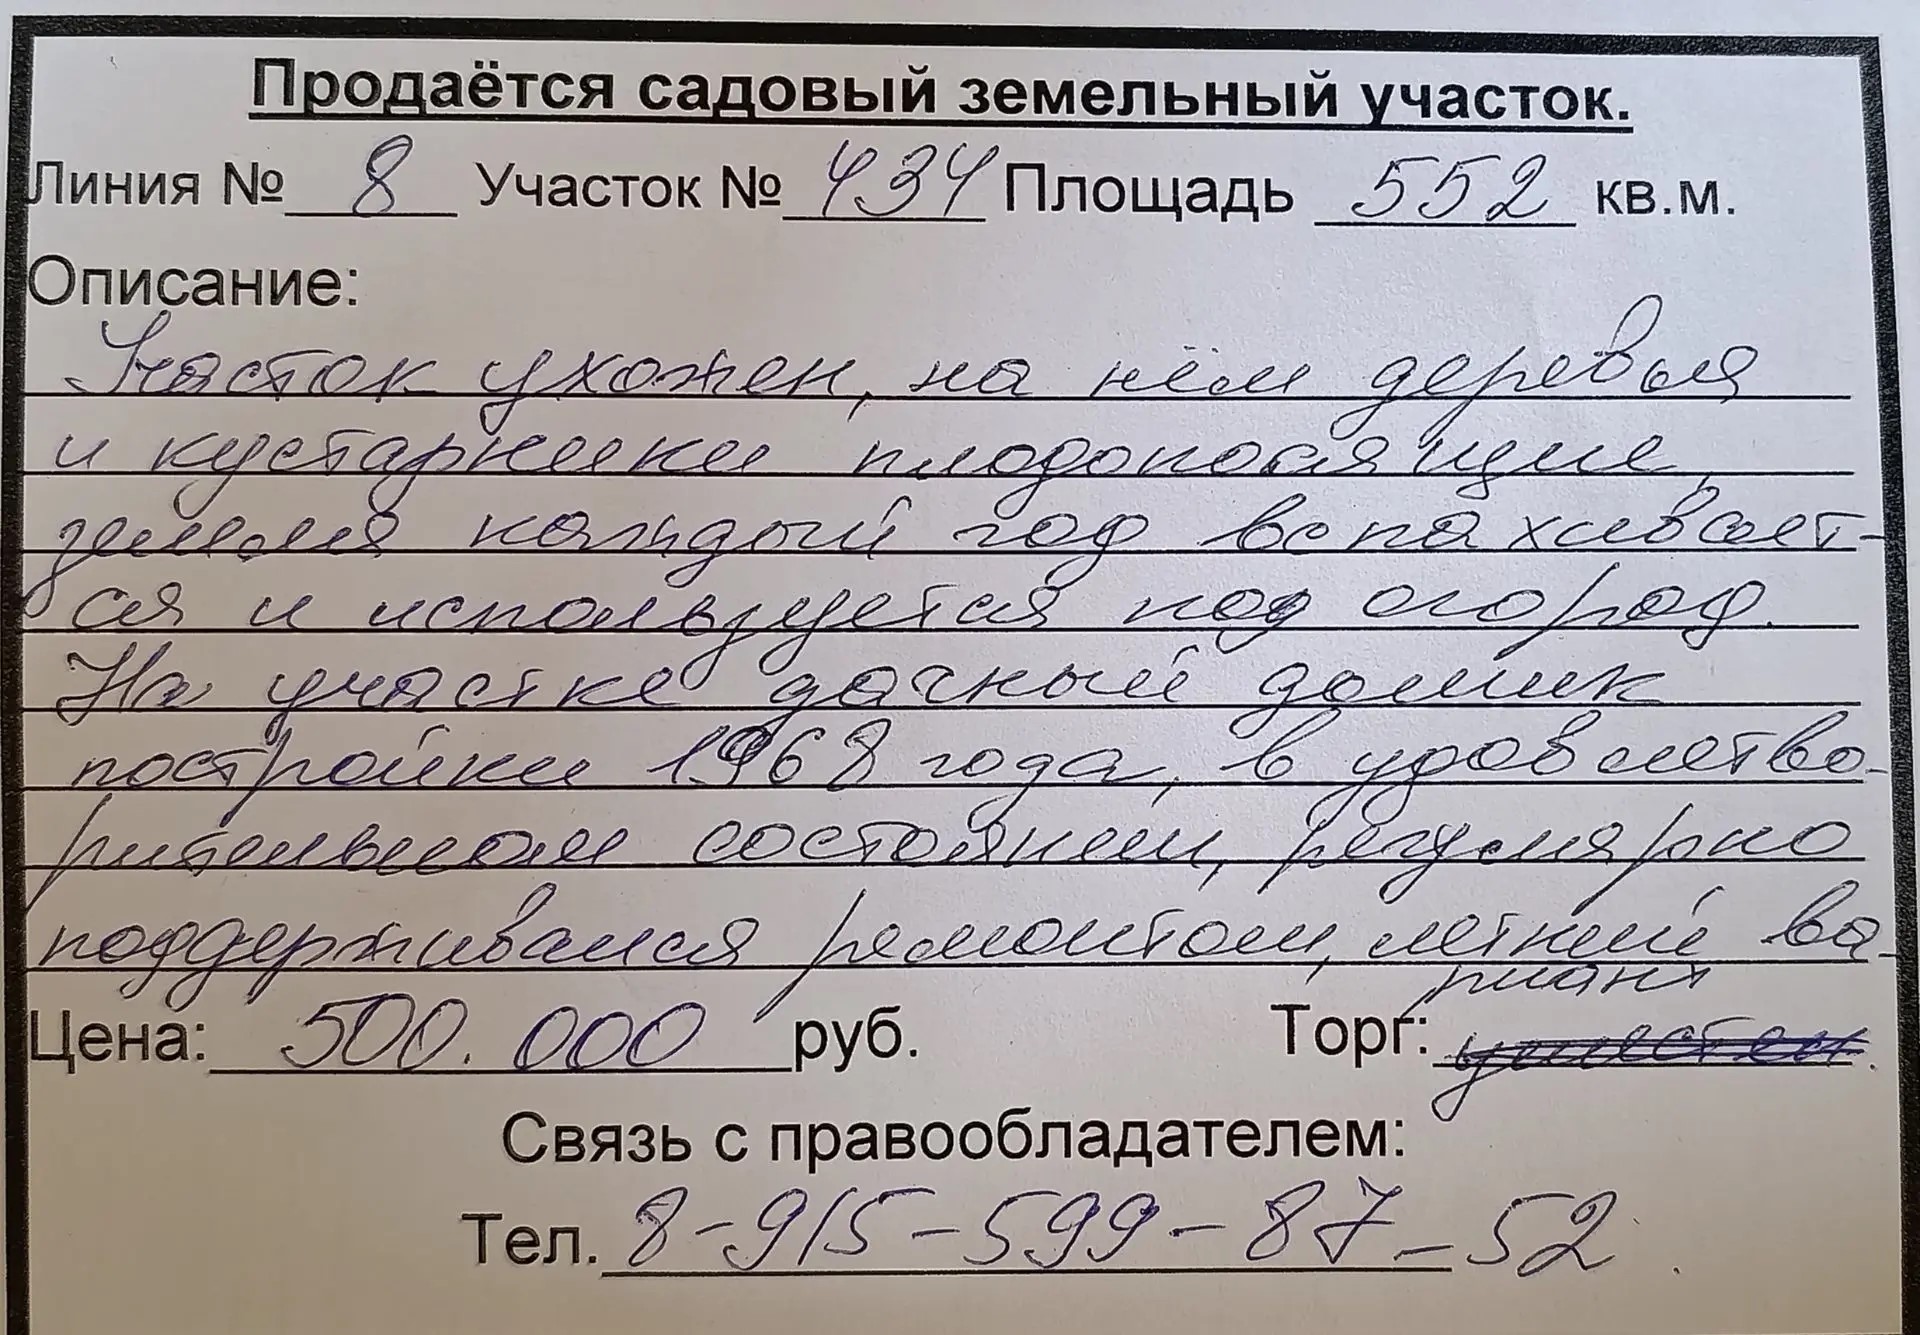 Продаётся садовый земельный участок.
Линия № 8 Участок № 434 Площадь 552 кв.м.
Описание:
Участок ухожен, на нём деревья
и кустарники плодоносящие,
земля каждый год вспахивает-
ся и используется под огород.
На участке дачный домик
постройки 1968 года, в удовлетво-
рительном состоянии, регулярно
поддерживался ремонтом, летний ва-
риант
Цена: 500.000 руб. Торг: уместен.
Связь с правообладателем:
Тел. 8-915-599-87-52.